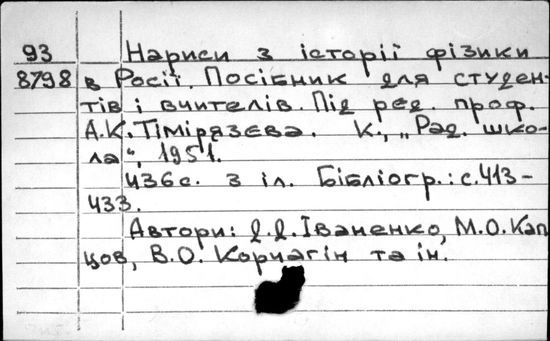 93 Нариси з історії фізики
8798 в Росії. Посібник для студен-
тів і вчителів. Під ред. проф.
А.К.Тімірязєва. К., „Рад. шко-
ла“, 1951.
436с. з іл. Бібліогр.: с.413-
433.
Автори: Д.Д.Іваненко, М.О.Кап
цов, В.О.Корчагін та ін.